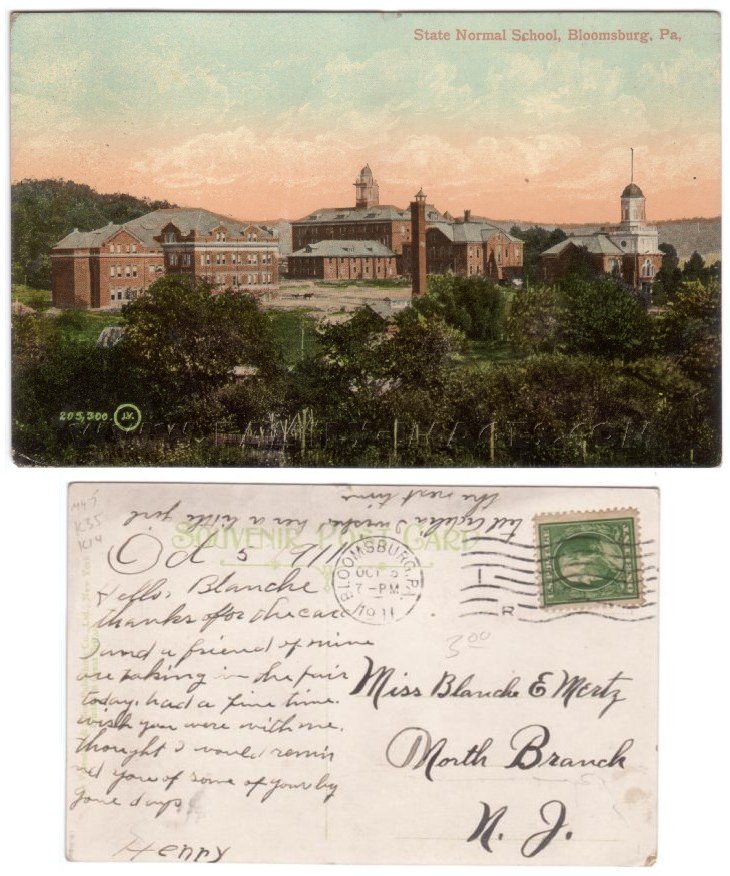 State Normal School, Bloomsburg, Pa,
205,300. J.V.
M4-5
K35
K14
the next time
wishes her a little girl
SOUVENIR POST CARD
Oct 5 1911
BLOOMSBURG, PA.
OCT 5
7-PM
1911
1
R
Hello, Blanche
thanks for the card
I and a friend of mine
are taking in the fair
today. had a fine time.
wish you were with me.
thought I would remin
ed you of some of your by
gone days
Henny
3.00
Miss Blanche E Mertz
North Branch
N. J.